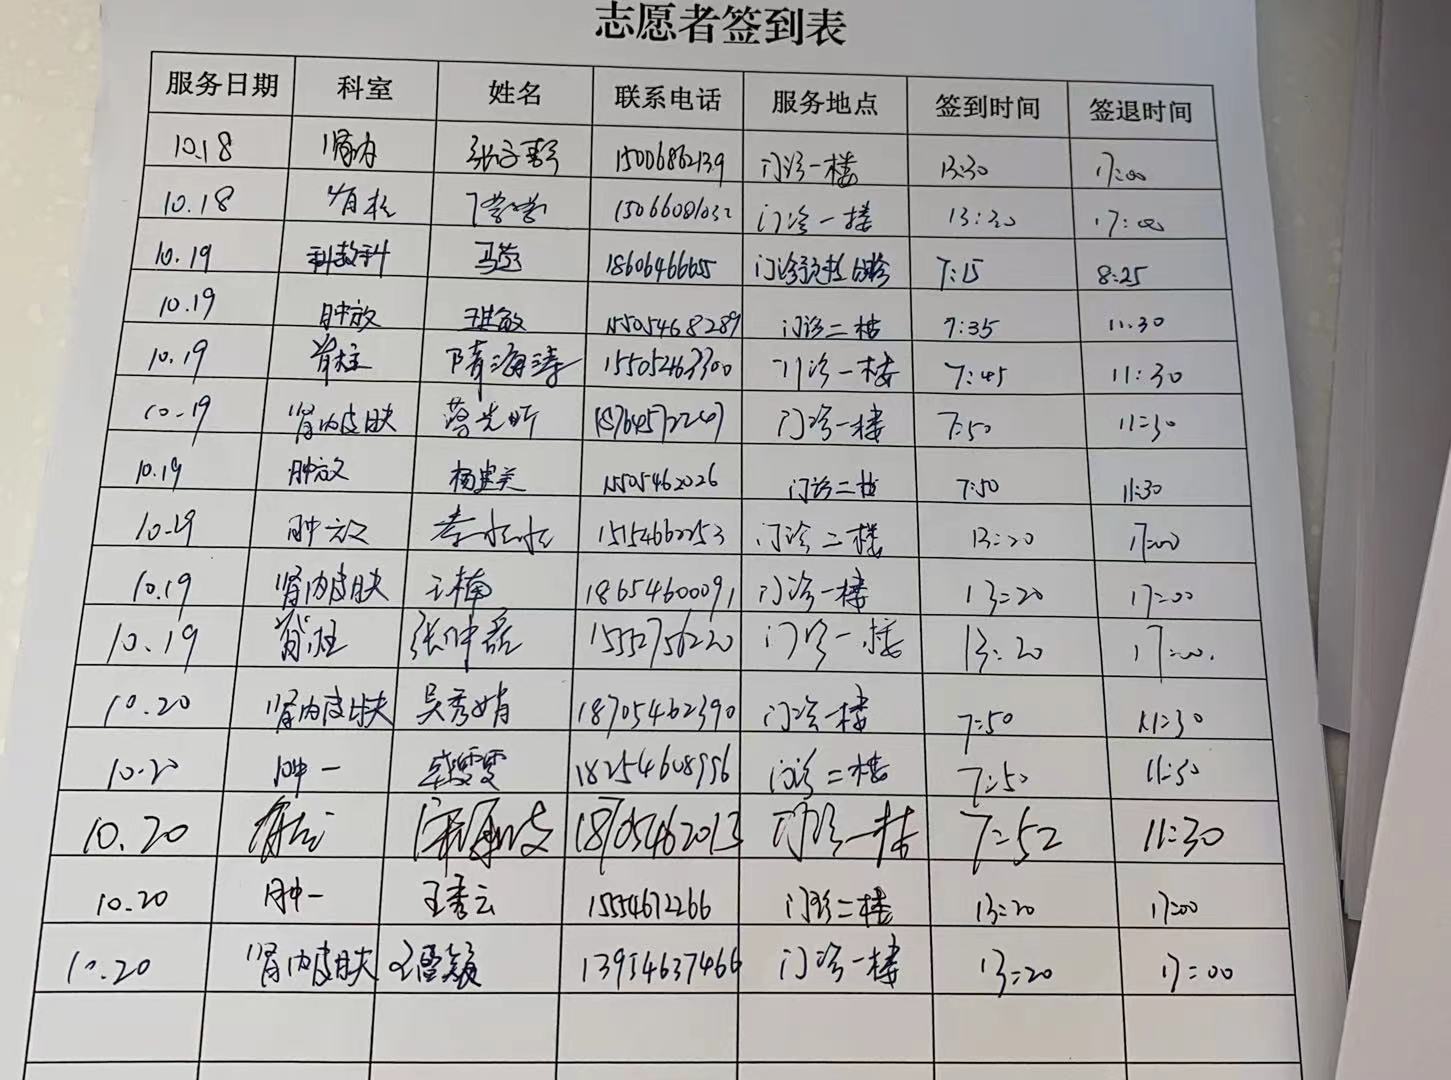 志愿者签到表
服务日期 科室 姓名 联系电话 服务地点 签到时间 签退时间
10.18 肾内 张子 15006862139 门诊一楼 13:30 17:00
10.18 脊柱 丁莹莹 15066081032 门诊一楼 13:20 17:00
10.19 科教科 马 18606466665 门诊 7:15 8:25
10.19 肿放 敏 15505468289 门诊二楼 7:35 11:30
10.19 脊柱 隋海涛 15505463300 门诊一楼 7:45 11:30
10.19 肾内皮肤 蒋光昕 18764572247 门诊一楼 7:50 11:30
10.19 肿放 杨建美 15505462026 门诊二楼 7:50 11:30
10.19 肿放 李水水 15154662253 门诊二楼 13:20 17:00
10.19 肾内皮肤 王楠 18654600091 门诊一楼 13:20 17:00
10.19 脊柱 张仲磊 15552756220 门诊一楼 13:20 17:00.
10.20 肾内皮肤 吴秀娟 18705462390 门诊一楼 7:50 11:30
10.20 肿一 雯雯 18254608996 门诊二楼 7:50 11:30
10.20 脊柱 18705462013 门诊一楼 7:52 11:30
10.20 肿一 王秀云 15554672266 门诊二楼 13:20 17:00
10.20 肾内皮肤 王雪颖 13954637466 门诊一楼 13:20 17:00